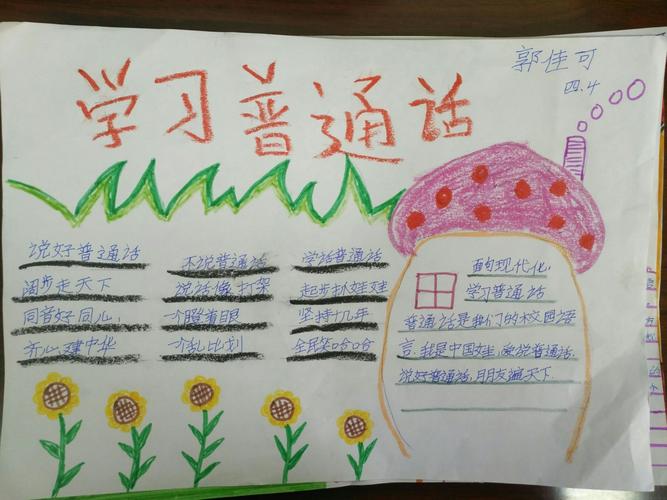 学习普通话
郭佳可
四.4
说好普通话
阔步走天下
同音好同心,
齐心建中华
不说普通话
说话像打架
一个瞪着眼
一个乱比划
学话普通话
起步扒娃娃
坚持几年
全民笑哈哈
面向现代化,
学习普通话
普通话是我们的校园语
言,我是中国娃,爱说普通话,
说好普通话,朋友遍天下